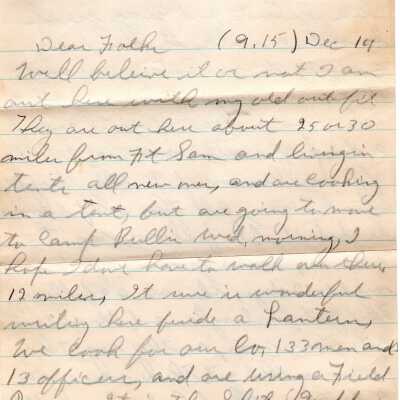 Dear Folks (9.15) Dec 19
Well beleive it or not I am
out here with my old out fit
They are out here about 25 or 30
miles from Ft Sam and living in
tents all new men, and are cooking
in a tent, but are going to move
to Camp Bullis Wed, morning, I
hope I dont have to walk over there
12 miles, It sure is wonderful
writing here beside a Lantern,
We cook for our Co, 133 men and
13 officers, and are using a Field